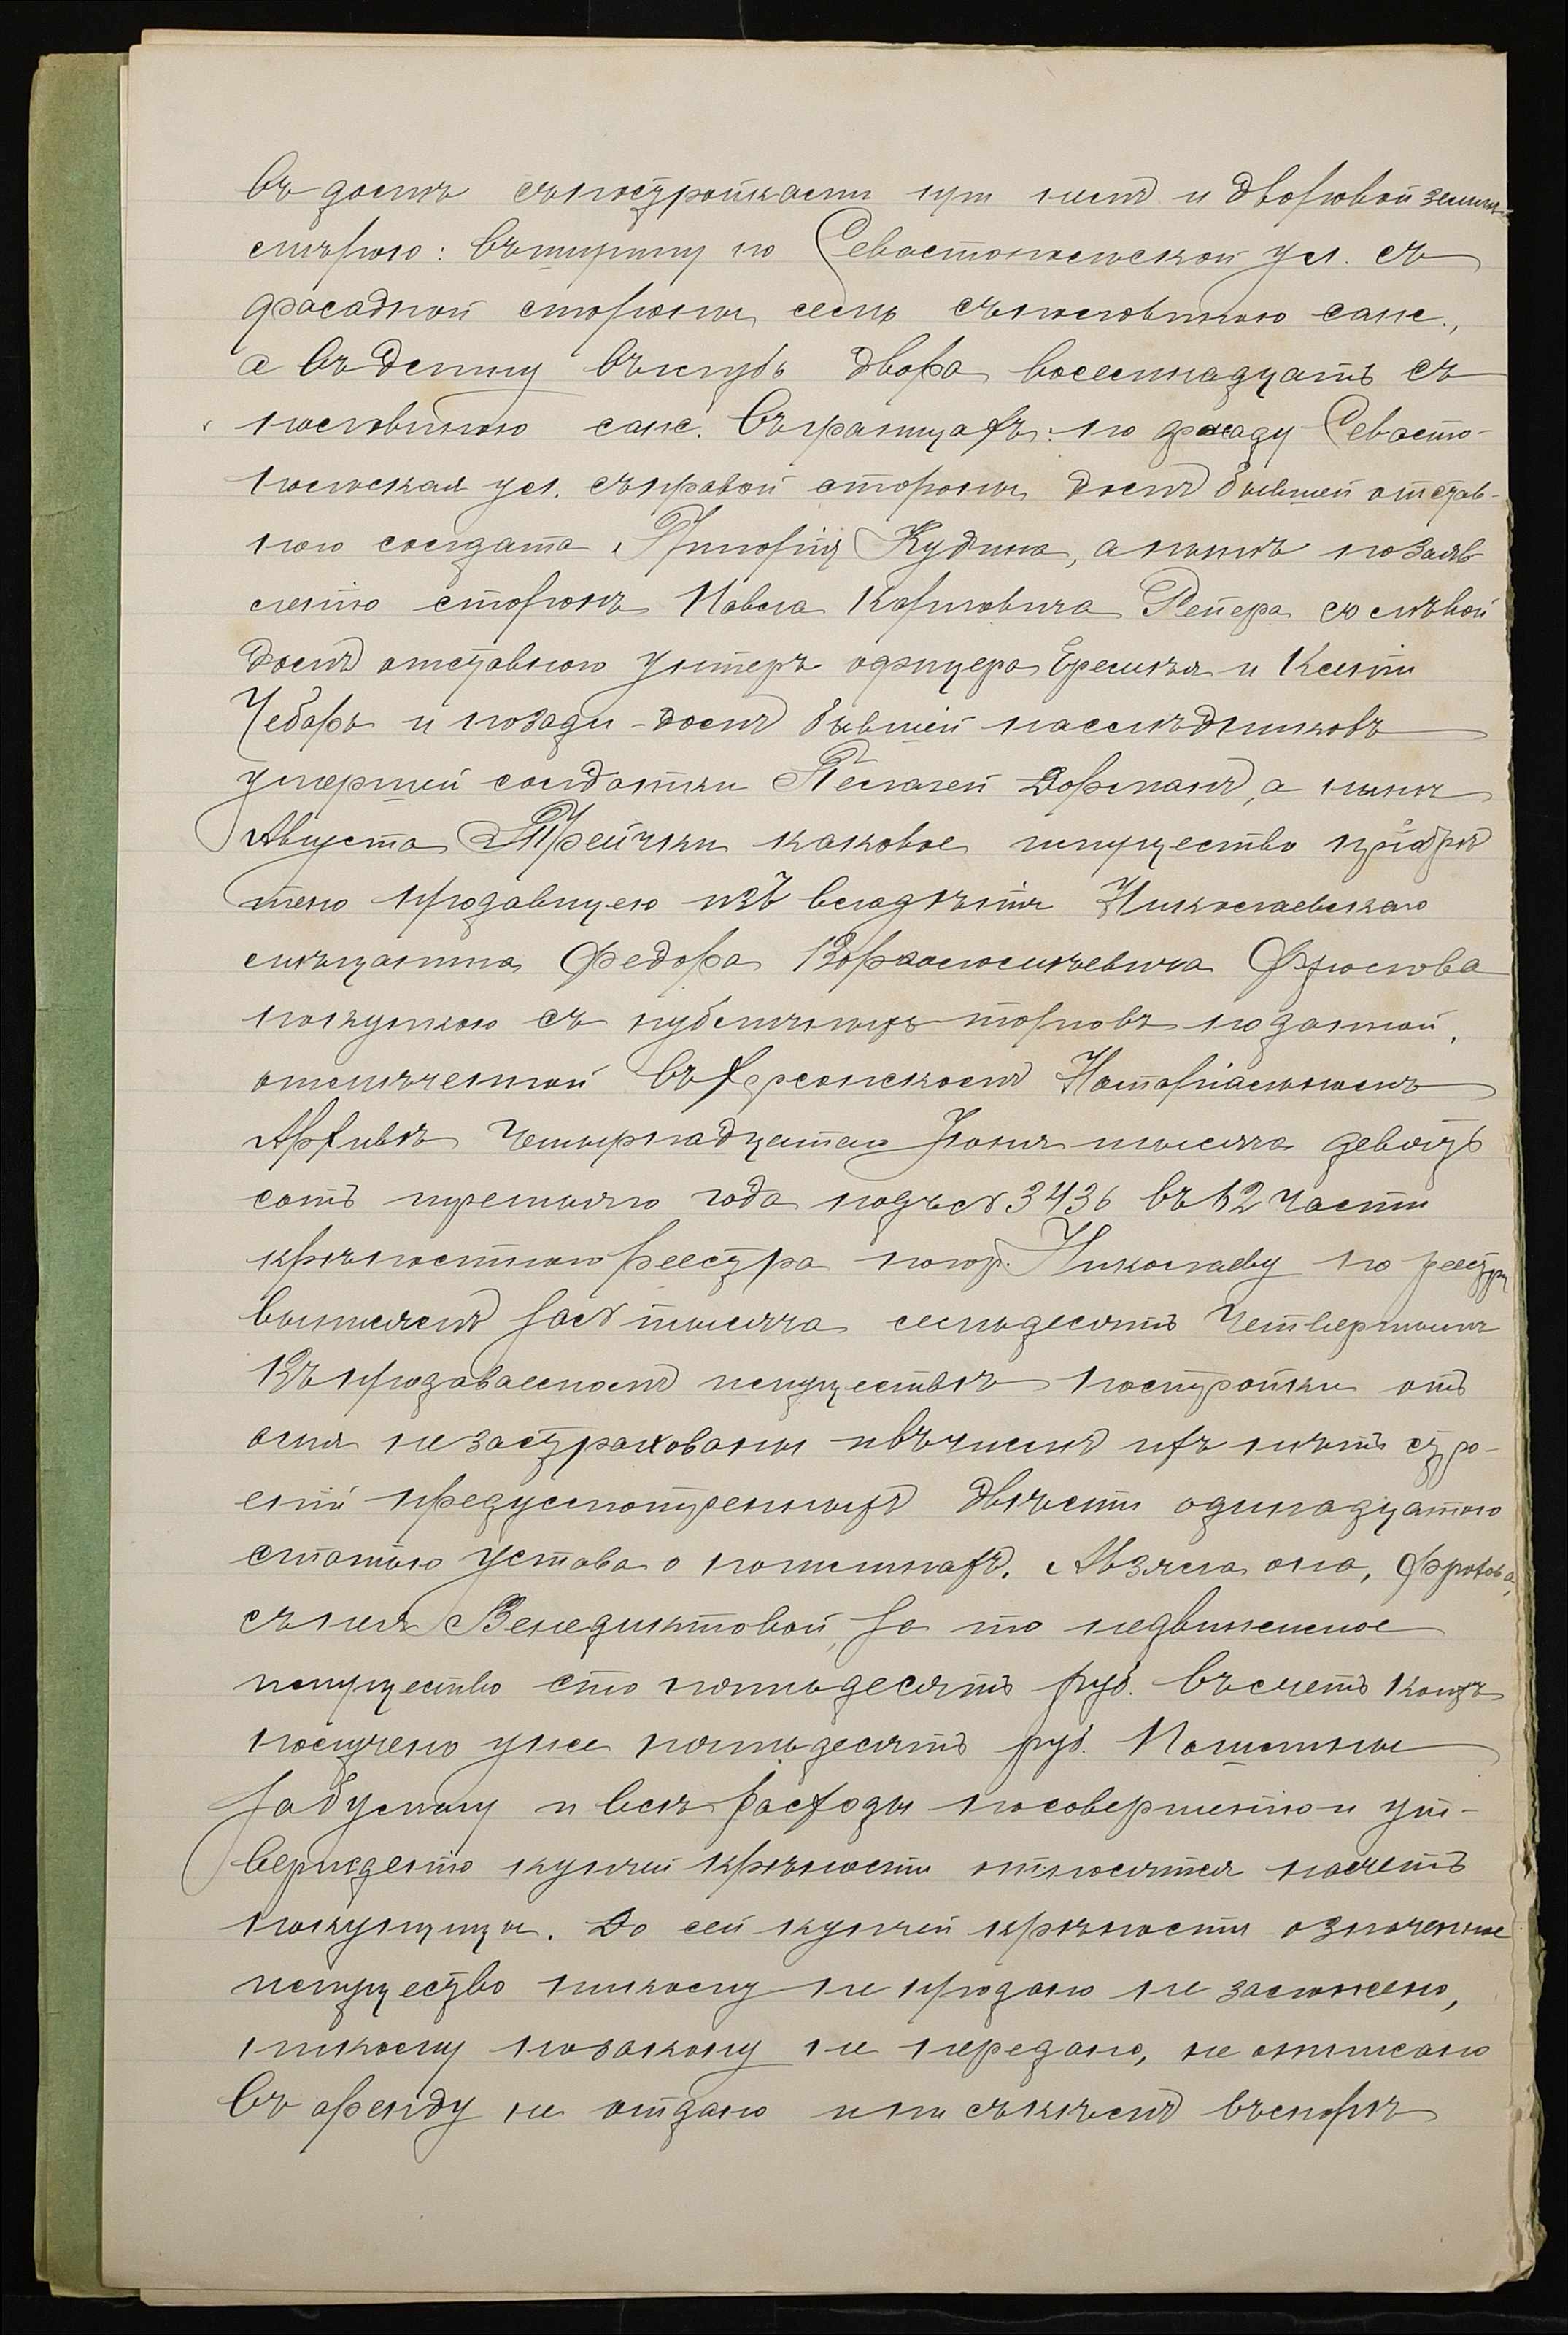 въ домѣ съ постройками при немъ и дворовой земли
мѣрою: въ ширину по Севастопольской ул. съ
фасадной стороны семь съ половиною саж.,
а въ длину въ глубь двора восемнадцать съ
половиною саж. Въ границахъ: по фасаду Севасто-
польская ул. съ правой стороны домъ бывшей отстав-
ного солдата Григорія Кудина, а нынѣ по заяв-
ленію сторонъ Павла Карповича Репера съ лѣвой
домъ отставного унтеръ офицера Еремѣя и Ксеніи
Чебаръ и позади - домъ бывшій наслѣдниковъ
умершей солдатки Пелагеи Дорманъ, а нынѣ
Августа Трейчки каковое имущество пріобрѣ
тено продавщею изъ владѣнія Николаевскаго
мѣщанина Федора Варфоломѣевича Фролова
покупкою съ публичныхъ торговъ по данной,
отмѣченной въ Херсонскомъ Нотаріальномъ
Архивѣ четырнадцатаго Іюня тысяча девять
сотъ третьяго года подъ № 3436 въ 12 части
крѣпостного реестра по гор. Николаеву по реестру
выписей за № тысяча семьдесятъ четвертымъ
Въ продаваемомъ имуществѣ постройки отъ
огня не застрахованы и въ числѣ ихъ нѣтъ стро-
еній предусмотренныхъ двѣсти одинадцатою
статью Устава о пошлинахъ. А взяла она, Фролова,
съ нея Венедиктовой, за то недвижимое
имущество сто пятьдесятъ руб. въ счетъ коихъ
получено уже пятьдесятъ руб. Пошлины
за бумагу и всѣ расходы по совершенію и ут-
вержденію купчей крѣпости относятся на счетъ
покупщицы. До сей купчей крѣпости означенное
имущество никому не продано не заложено,
никому по закону не передано, не описано
въ аренду не отдано и ни съ кѣмъ въ спорѣ